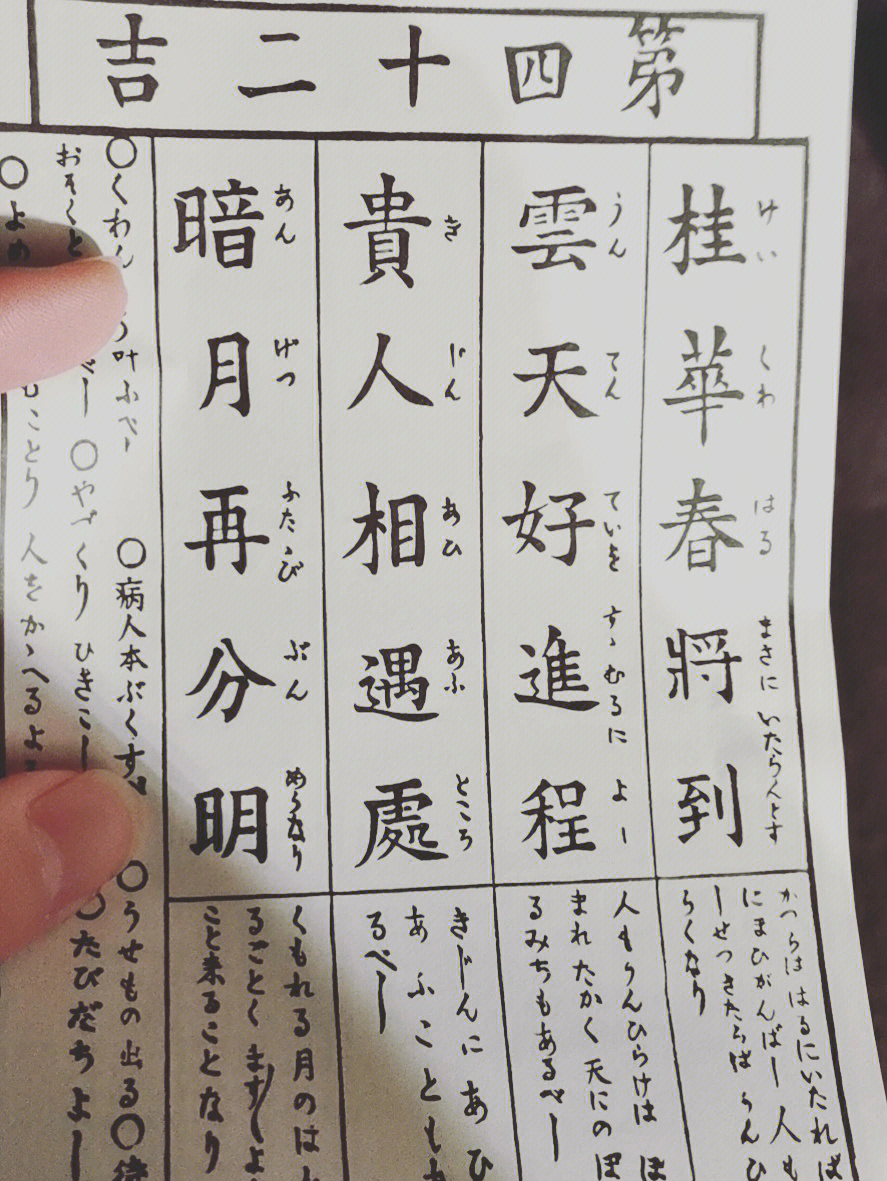 第四十二吉
桂華春將到
けい くわ はる まさに いたらんとす
雲天好進程
うん てん ていを すゝむるに よし
貴人相遇處
き じん あひ あふ ところ
暗月再分明
あん げつ ふたゝび ぶん めうなり
かつらは はるにいたれば
にまひがんばし 人も
しせつきたらば うんひ
らくなり
人もうんひらけは ほ
まれたかく 天にのぼ
るみちもあるべし
きじんに あひ
あふことも
るべし
くもれる月のは
るごとく ますしよ
こと来ることなり
〇くわん 叶ふべし 〇病人本ぶくす 〇うせもの出る〇待
おそくと べし 〇やづくり ひきこし 〇たびだちよし
〇よめ もことり 人をかゝへるよ